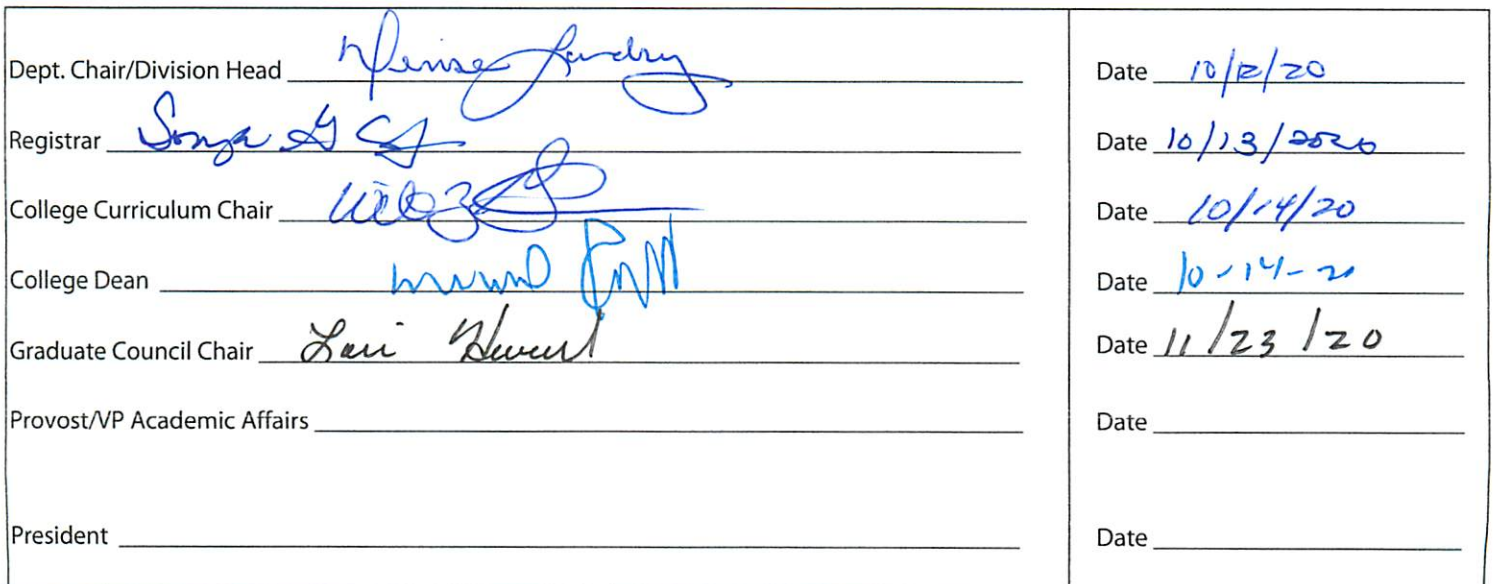 Dept. Chair/Division Head Denise Landry Date 10/12/20
Registrar Sonya G Date 10/13/2020
College Curriculum Chair Date 10/14/20
College Dean Date 10-14-20
Graduate Council Chair Lori Date 11/23/20
Provost/VP Academic Affairs Date
President Date